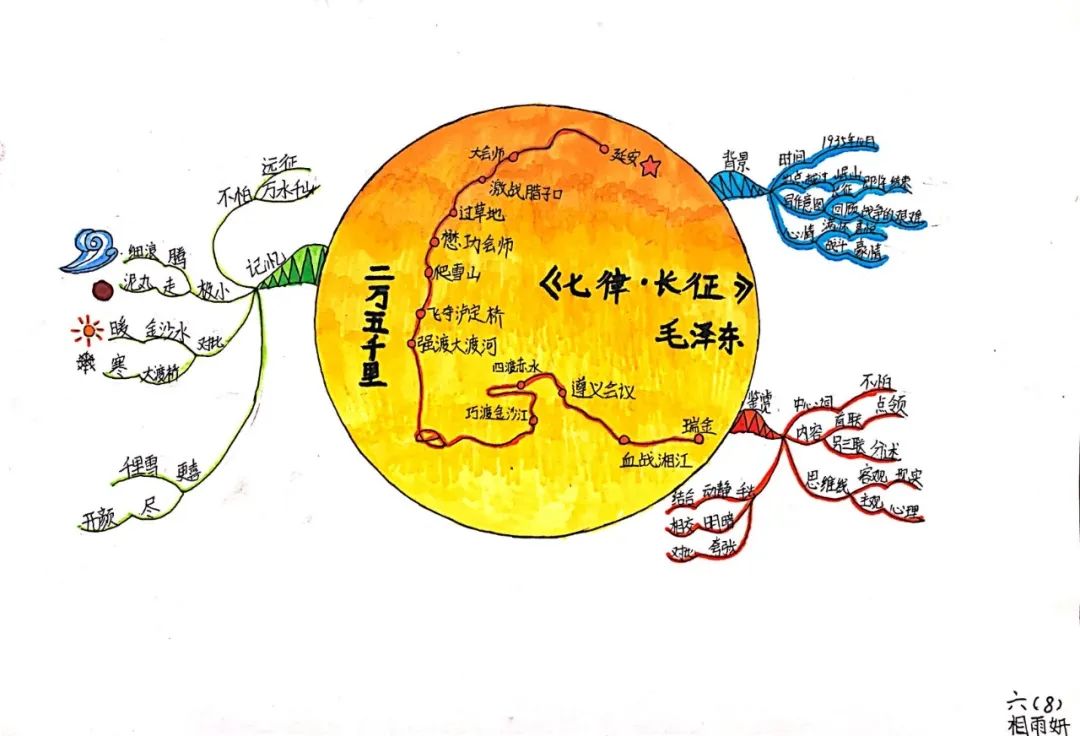 《七律·长征》
毛泽东
二万五千里
瑞金
血战湘江
遵义会议
四渡赤水
巧渡金沙江
强渡大渡河
飞夺泸定桥
爬雪山
懋功会师
过草地
激战腊子口
大会师
延安
记忆
不怕
远征
万水千山
极小
细浪 腾
泥丸 走
对比
暖 金沙水
寒 大渡桥
更喜
千里雪
尽
开颜
背景
时间
1935年10月
越过 岷山
长征 即将 结束
写作意图
回顾 战争的艰难
心情
战斗 豪情
鉴赏
中心词
不怕
内容
首联
点领
另三联 分述
思维线
客观 现实
主观 心理
手法
动静 结合
明暗 相交
夸张 对比
六(8)
相雨妍